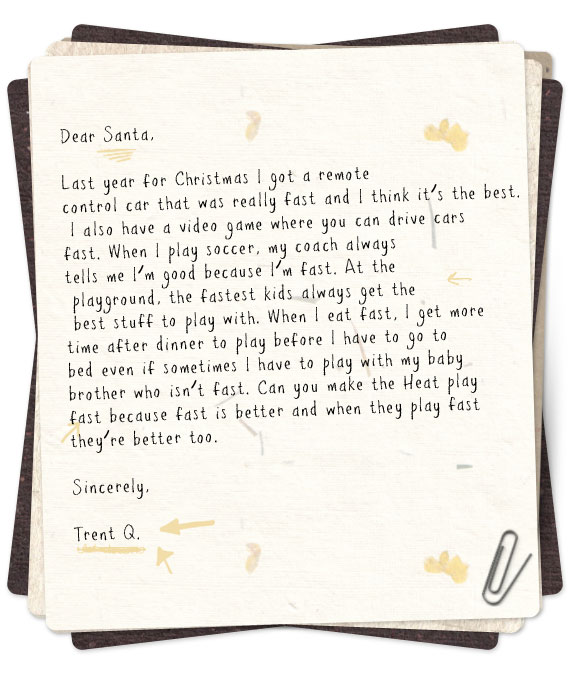 Dear Santa,
Last year for Christmas I got a remote
control car that was really fast and I think it's the best.
I also have a video game where you can drive cars
fast. When I play soccer, my coach always
tells me I'm good because I'm fast. At the
playground, the fastest kids always get the
best stuff to play with. When I eat fast, I get more
time after dinner to play before I have to go to
bed even if sometimes I have to play with my baby
brother who isn't fast. Can you make the Heat play
fast because fast is better and when they play fast
they're better too.
Sincerely,
Trent Q.